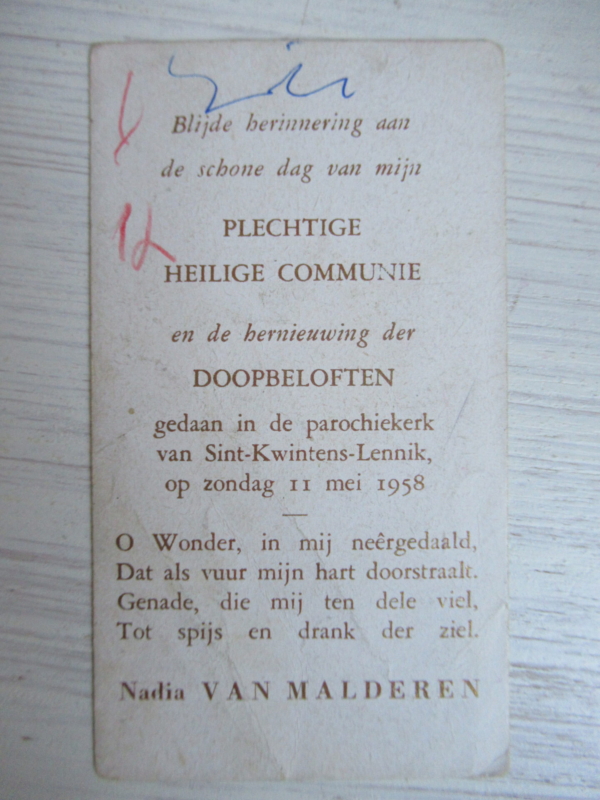 Blijde herinnering aan
de schone dag van mijn
PLECHTIGE
HEILIGE COMMUNIE
en de hernieuwing der
DOOPBELOFTEN
gedaan in de parochiekerk
van Sint-Kwintens-Lennik,
op zondag 11 mei 1958
O Wonder, in mij neêrgedaald,
Dat als vuur mijn hart doorstraalt.
Genade, die mij ten dele viel,
Tot spijs en drank der ziel.
Nadia VAN MALDEREN